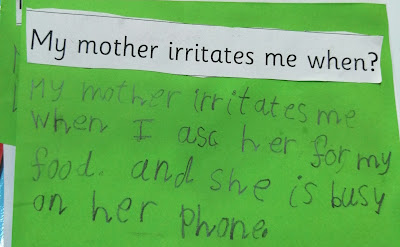 My mother irritates me when?
My mother irritates me
when I asc her for my
food. and she is busy
on her phone.